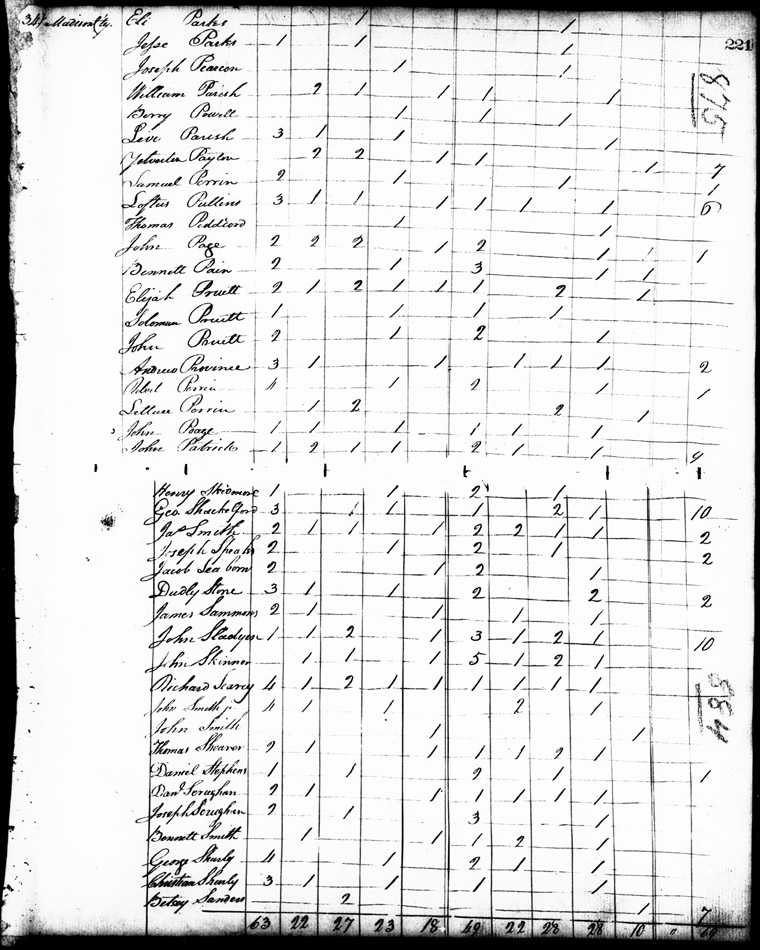 341 Madison Cty. Eli Parks 1 1
221
Jesse Parks 1 1 1
Joseph Pearson 1 1
William Parish 2 1 1 1 1
Berry Powell 1 1 1
Levi Parish 3 1 1 1
Yelverton Payton 2 2 1 1 1 7
Samuel Perrin 2 1 1 1
Loftus Pullins 3 1 1 1 1 1 1 6
Thomas Peddicord 1 1
John Page 2 2 2 1 2 1 1 1
Bennett Pain 2 1 3 1 1
Elijah Pruett 2 1 2 1 1 1 2 1
Solomun Pruett 1 1 1 1
John Pruett 2 1 2 1
Andrew Province 3 1 1 1 1 1 2
Perrin 4 1 2 1 1
Perrin 1 2 2 1
John Page 1 1 1 1 1 1
John Patrick 1 2 1 1 2 1 1 9
Henry Skidmore 1 1 2 1
Geo Shackelford 3 1 1 2 1 10
Jas Smith 2 1 1 1 2 2 1 1 2
Joseph Speaks 2 1 2 1 2
Jacob Seaborn 2 1 2 1
Dudly Stone 3 1 1 2 2 2
James Sammons 2 1 1 1 1
John Sladyen 1 1 2 1 3 1 2 1 10
John Skinner 1 1 1 5 1 2 1
Richard Searcy 4 1 2 1 1 1 1 1 1
John Smith jr 4 1 1 2 1
John Smith 1 1
Thomas Shearer 2 1 1 1 1 2 1
Daniel Stephens 1 1 2 1 1
Danl Serughan 2 1 1 1 1 1 1
Joseph Serughan 2 1 3 1
Bennett Smith 1 1 1 2 1
George Shurly 4 1 2 1 1
Christian Shurly 3 1 1 1 1
Betsy Sanders 2 1 7
63 22 27 23 18 49 22 28 28 10 "